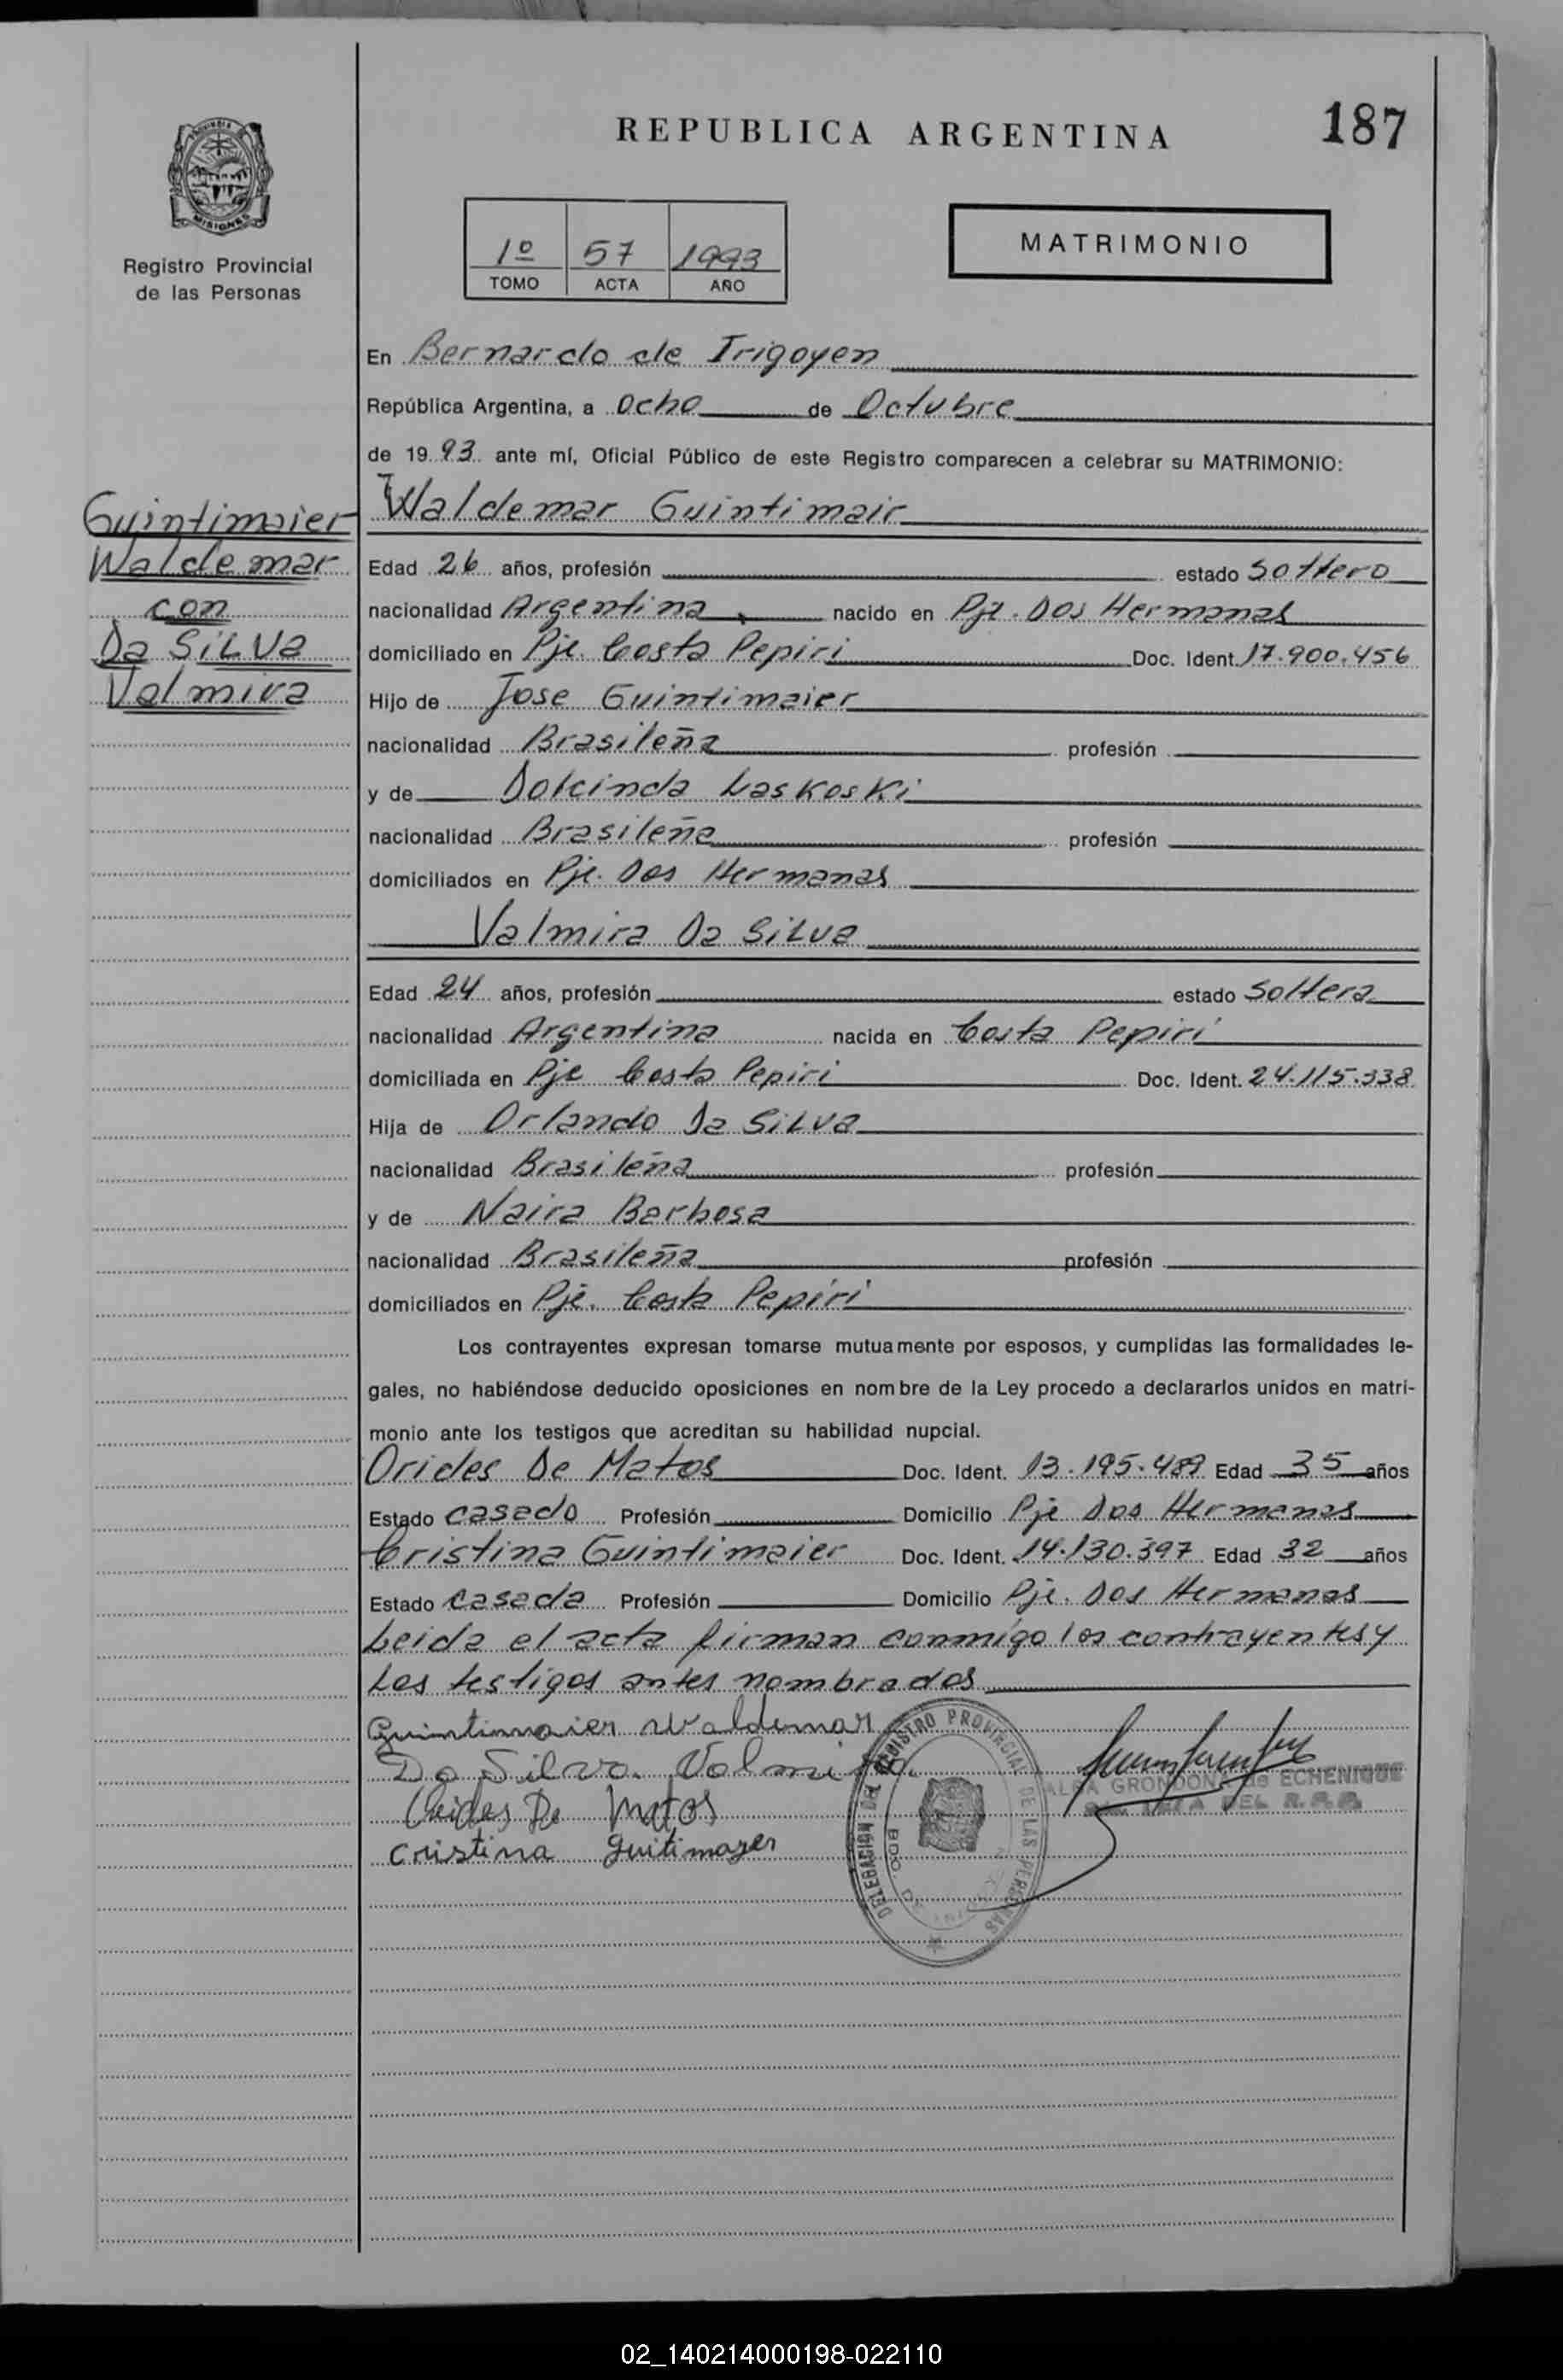 187
REPUBLICA ARGENTINA
PROVINCIA DE
MISIONES
Registro Provincial
de las Personas
1º 57 1993
TOMO ACTA AÑO
MATRIMONIO
En Bernardo de Irigoyen
República Argentina, a Ocho de Octubre
de 19 93 ante mí, Oficial Público de este Registro comparecen a celebrar su MATRIMONIO:
Guintimaier
Waldemar
con
Da SiLVa
Valmira
Waldemar Guintimair
Edad 26 años, profesión estado Soltero
nacionalidad Argentina nacido en Pje. Dos Hermanas
domiciliado en Pje. Costa Pepiri Doc. Ident. 17.900.456
Hijo de Jose Guintimaier
nacionalidad Brasileña profesión
y de Dolcinda Laskoski
nacionalidad Brasileña profesión
domiciliados en Pje. Dos Hermanas
Valmira Da SiLva
Edad 24 años, profesión estado Soltera
nacionalidad Argentina nacida en Costa Pepiri
domiciliada en Pje Costa Pepiri Doc. Ident. 24.115.338
Hija de Orlando Da SiLva
nacionalidad Brasileña profesión
y de Naira Barbosa
nacionalidad Brasileña profesión
domiciliados en Pje. Costa Pepiri
Los contrayentes expresan tomarse mutuamente por esposos, y cumplidas las formalidades le-
gales, no habiéndose deducido oposiciones en nombre de la Ley procedo a declararlos unidos en matri-
monio ante los testigos que acreditan su habilidad nupcial.
Orides De Matos Doc. Ident. 13.195.489 Edad 35 años
Estado Casado Profesión Domicilio Pje Dos Hermanas
Cristina Guintimaier Doc. Ident. 14.130.397 Edad 32 años
Estado Casada Profesión Domicilio Pje. Dos Hermanas
Leida el acta firman conmigo los contrayentes y
Los testigos antes nombrados
Guintimaier Waldemar
Da Silva Valmira
Orides De Matos
Cristina guitimayer
DELEGACION DEL REGISTRO PROVINCIAL DE LAS PERSONAS
BDO. DE
ALBA GRONDONA de ECHENIQUE
02_140214000198-022110